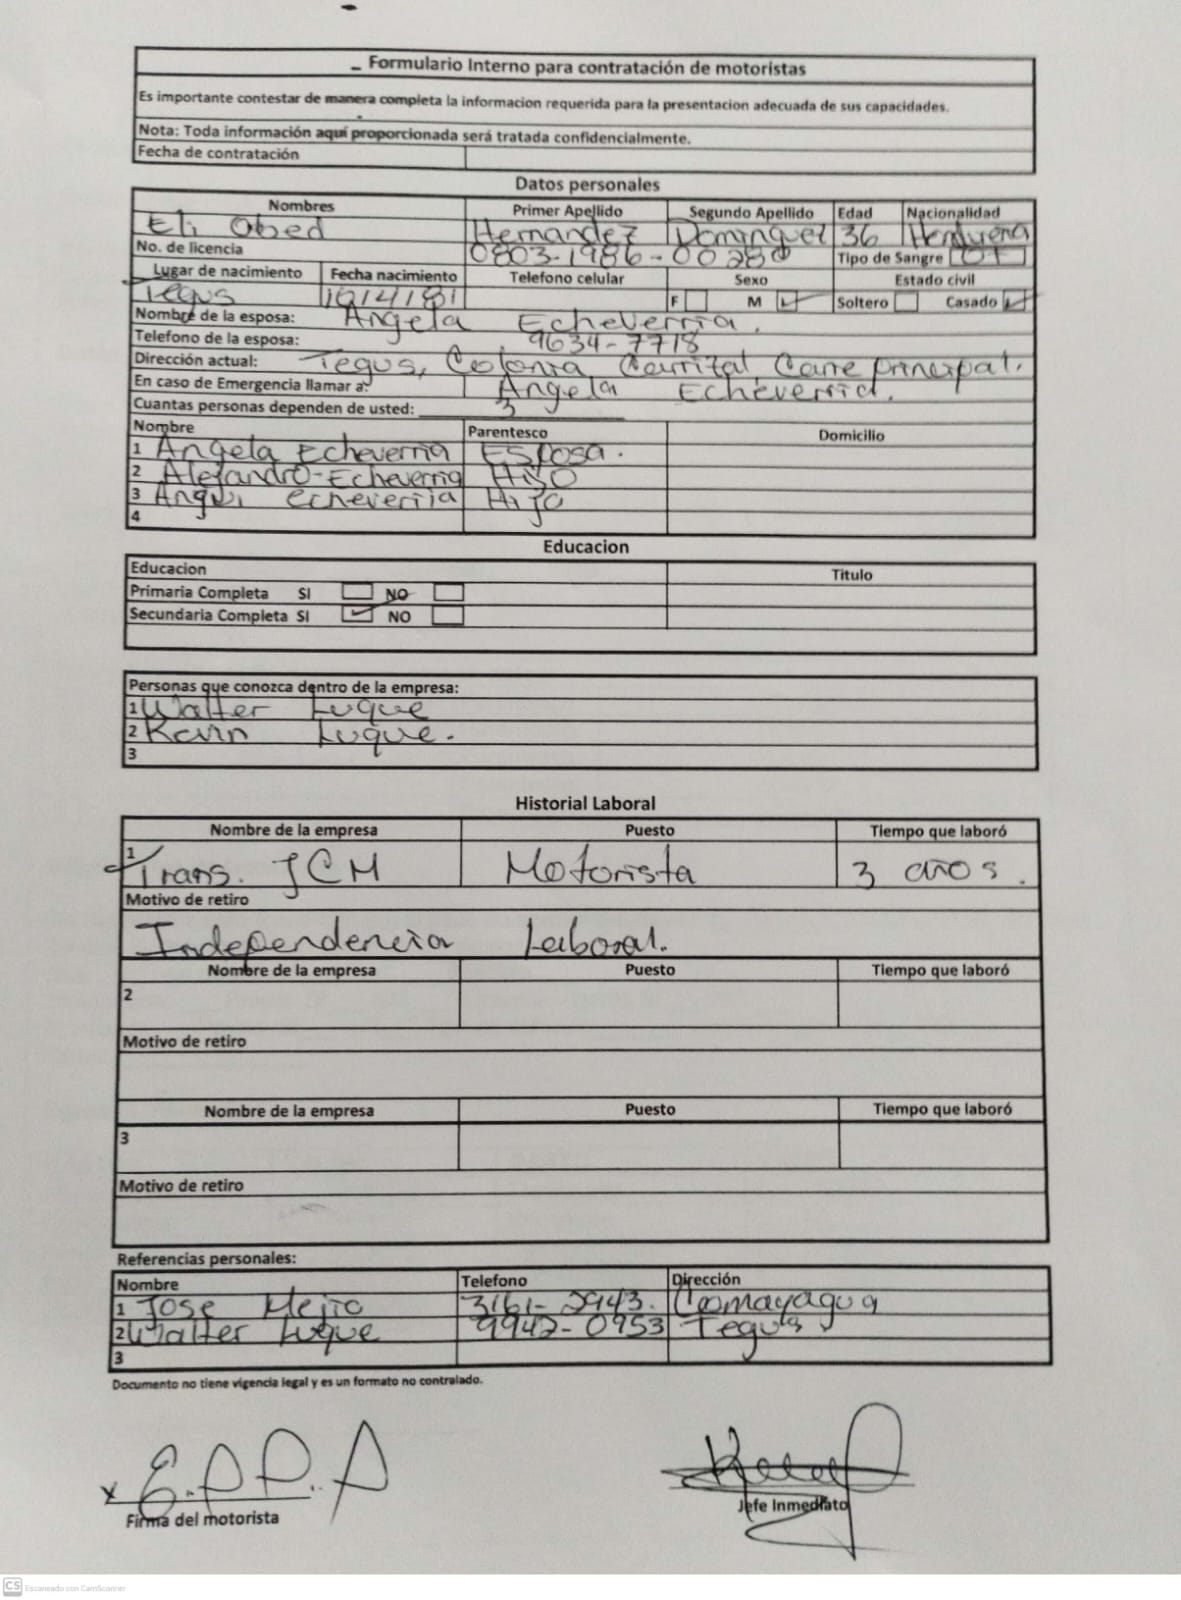 Formulario Interno para contratación de motoristas
Es importante contestar de manera completa la informacion requerida para la presentacion adecuada de sus capacidades.
Nota: Toda información aquí proporcionada será tratada confidencialmente.
Fecha de contratación
Datos personales
Nombres Primer Apellido Segundo Apellido Edad Nacionalidad
Eli Obed Hernandez Dominguez 36 Hondureña
No. de licencia 0803-1986-00280 Tipo de Sangre O+
Lugar de nacimiento Fecha nacimiento Telefono celular Sexo Estado civil
Tegus F M Soltero Casado
Nombre de la esposa: Angela Echeverria.
Telefono de la esposa: 9634-7718
Dirección actual: Tegus, Colonia principal.
En caso de Emergencia llamar a: Angela Echeverria.
Cuantas personas dependen de usted: 3
Nombre Parentesco Domicilio
1 Angela Echeverria Esposa.
2 Alejandro Echeverria Hijo
3 echeverria Hijo
4
Educacion
Educacion Titulo
Primaria Completa SI NO
Secundaria Completa SI NO
Personas que conozca dentro de la empresa:
1 Walter Luque
2 Kevin Luque.
3
Historial Laboral
Nombre de la empresa Puesto Tiempo que laboró
1 Trans. JCM Motorista 3 años.
Motivo de retiro
Independencia Laboral.
Nombre de la empresa Puesto Tiempo que laboró
2
Motivo de retiro
Nombre de la empresa Puesto Tiempo que laboró
3
Motivo de retiro
Referencias personales:
Nombre Telefono Dirección
1 Jose Mejia 3161-2943. Comayagua
2 Walter Luque 9942-0953 Tegus
3
Documento no tiene vigencia legal y es un formato no contralado.
x
Firma del motorista Jefe Inmediato
CS Escaneado con CamScanner